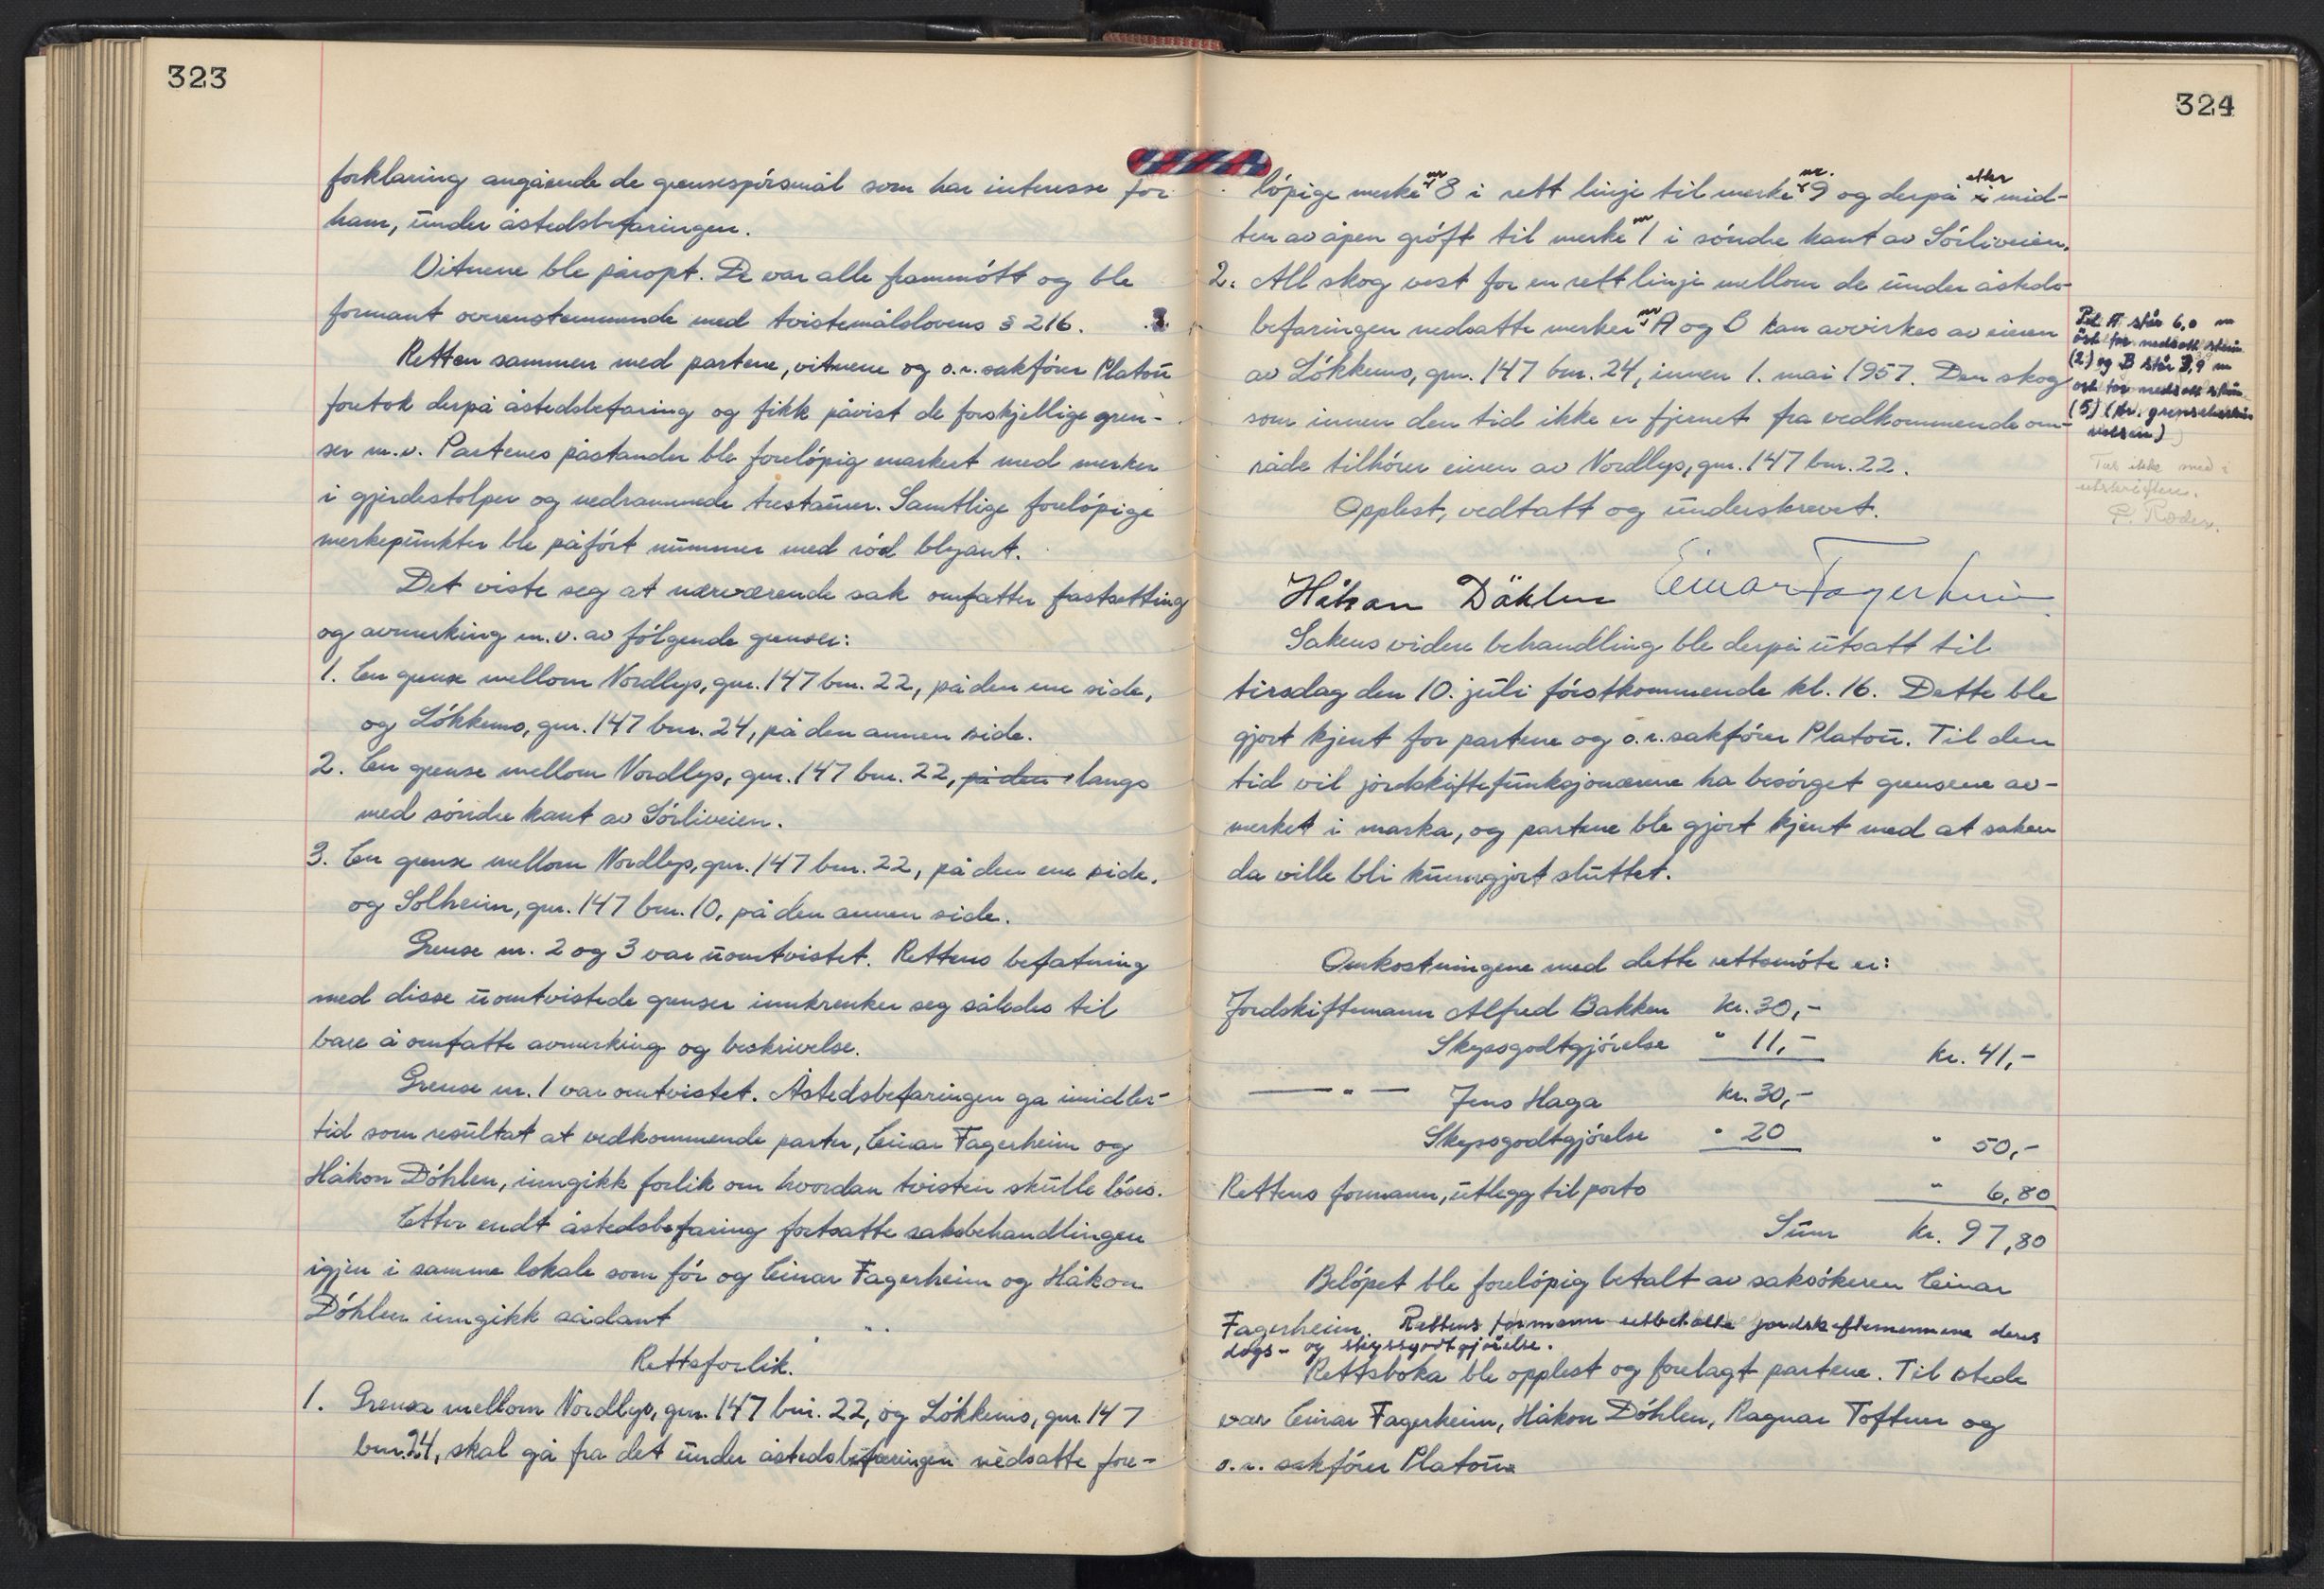 323
forklaring angående de grensespórsmål som har interesse for
ham, under åstedsbefaringen.
Vitnene ble påropt. De var alle frammótt og ble
formant overenstemmende med tvistemålslovens § 216.
Retten sammen med partene, vitnene og o.r.sakfórer Platou
foretok derpå åstedsbefaring og fikk påvist de forskjellige gren-
ser m.v. Partenes påstander ble forelópig markert med merker
i gjerdestolper og nedrammede trestaurer. Samtlige forelópige
merkepunkter ble påfórt nummer med ród blyant.
Det viste seg at nærværende sak omfatter fastsetting
og avmerking m.v. av fólgende grenser:
1. En grense mellom Nordlys, gnr. 147 bnr. 22, på den ene side,
og Lókkemo, gnr. 147 bnr. 24, på den annen side.
2. En grense mellom Nordlys, gnr. 147 bnr. 22, på den langs
med sóndre kant av Sórliveien.
3. En grense mellom Nordlys, gnr. 147 bnr. 22, på den ene side,
og Solheim, gnr. 147 bnr. 10, på den annen side.
Grense nr. 2 og 3 var uomtvistet. Rettens befatning
med disse uomtvistede grenser innkrenker seg således til
bare å omfatte avmerking og beskrivelse.
Grense nr. 1 var omtvistet. Åstedsbefaringen ga imidler-
tid som resultat at vedkommende parter, Einar Fagerheim og
Håkon Dóhlen, inngikk forlik om hvordan tvisten skulle lóses.
Etter endt åstedsbefaring fortsatte saksbehandlingen
igjen i samme lokale som fór og Einar Fagerheim og Håkon
Dóhlen inngikk sådant
Rettsforlik.
1. Grensa mellom Nordlys, gnr. 147 bnr. 22, og Lókkemo, gnr. 147
bnr. 24, skal gå fra det under åstedsbefaringen nedsatte fore-
324
lópige merke nr 8 i rett linje til merke nr. 9 og derpå i etter mid-
ten av åpen gróft til merke nr 1 i sóndre kant av Sórliveien.
2. All skog vest for en rett linje mellom de under åsteds-
befaringen nedsatte merker nr A og B kan avvirkes av eieren
av Lókkemo, gnr. 147 bnr. 24, innen 1. mai 1957. Den skog
som innen den tid ikke er fjernet fra vedkommende om-
råde tilhórer eieren av Nordlys, gnr. 147 bnr. 22.
Opplest, vedtatt og underskrevet.
Pel A står 6,0 m
öst for nedsatt stein
(2) og B står 3,9 m
öst for nedsatt stein
(5) (kfr. grensebeskri-
velsen)
Tas ikke med i
utskriften.
Håkon Döhlen Einar Fagerheim
Sakens videre behandling ble derpå utsatt til
tirsdag den 10. juli fórstkommende kl. 16. Dette ble
gjort kjent for partene og o.r.sakfórer Platou. Til den
tid vil jordskiftefunksjonærene ha besórget grensene av-
merket i marka, og partene ble gjort kjent med at saken
da ville bli kunngjort sluttet.
Omkostningene med dette rettsmóte er:
Jordskiftemann Alfred Bakken kr. 30,-
Skyssgodtgjórelse " 11,- kr. 41,-
— " — Jens Haga kr. 30,-
Skyssgodtgjórelse " 20 " 50,-
Rettens formann, utlegg til porto " 6,80
Sum kr. 97,80
Belópet ble forelópig betalt av saksókeren Einar
Fagerheim. Rettens formann utbetalte jordskiftemennene deres
dags- og skyssgodtgjörelse.
Rettsboka ble opplest og forelagt partene. Til stede
var Einar Fagerheim, Håkon Dóhlen, Ragnar Toftner og
o.r. sakfórer Platou.